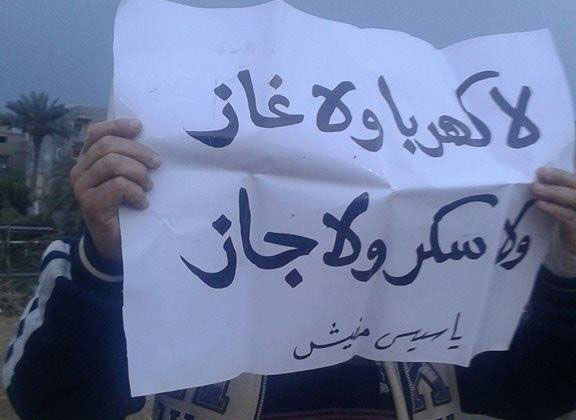 لا كهربا ولا غاز
ولا سكر ولا جاز
يا سيسي مفيش